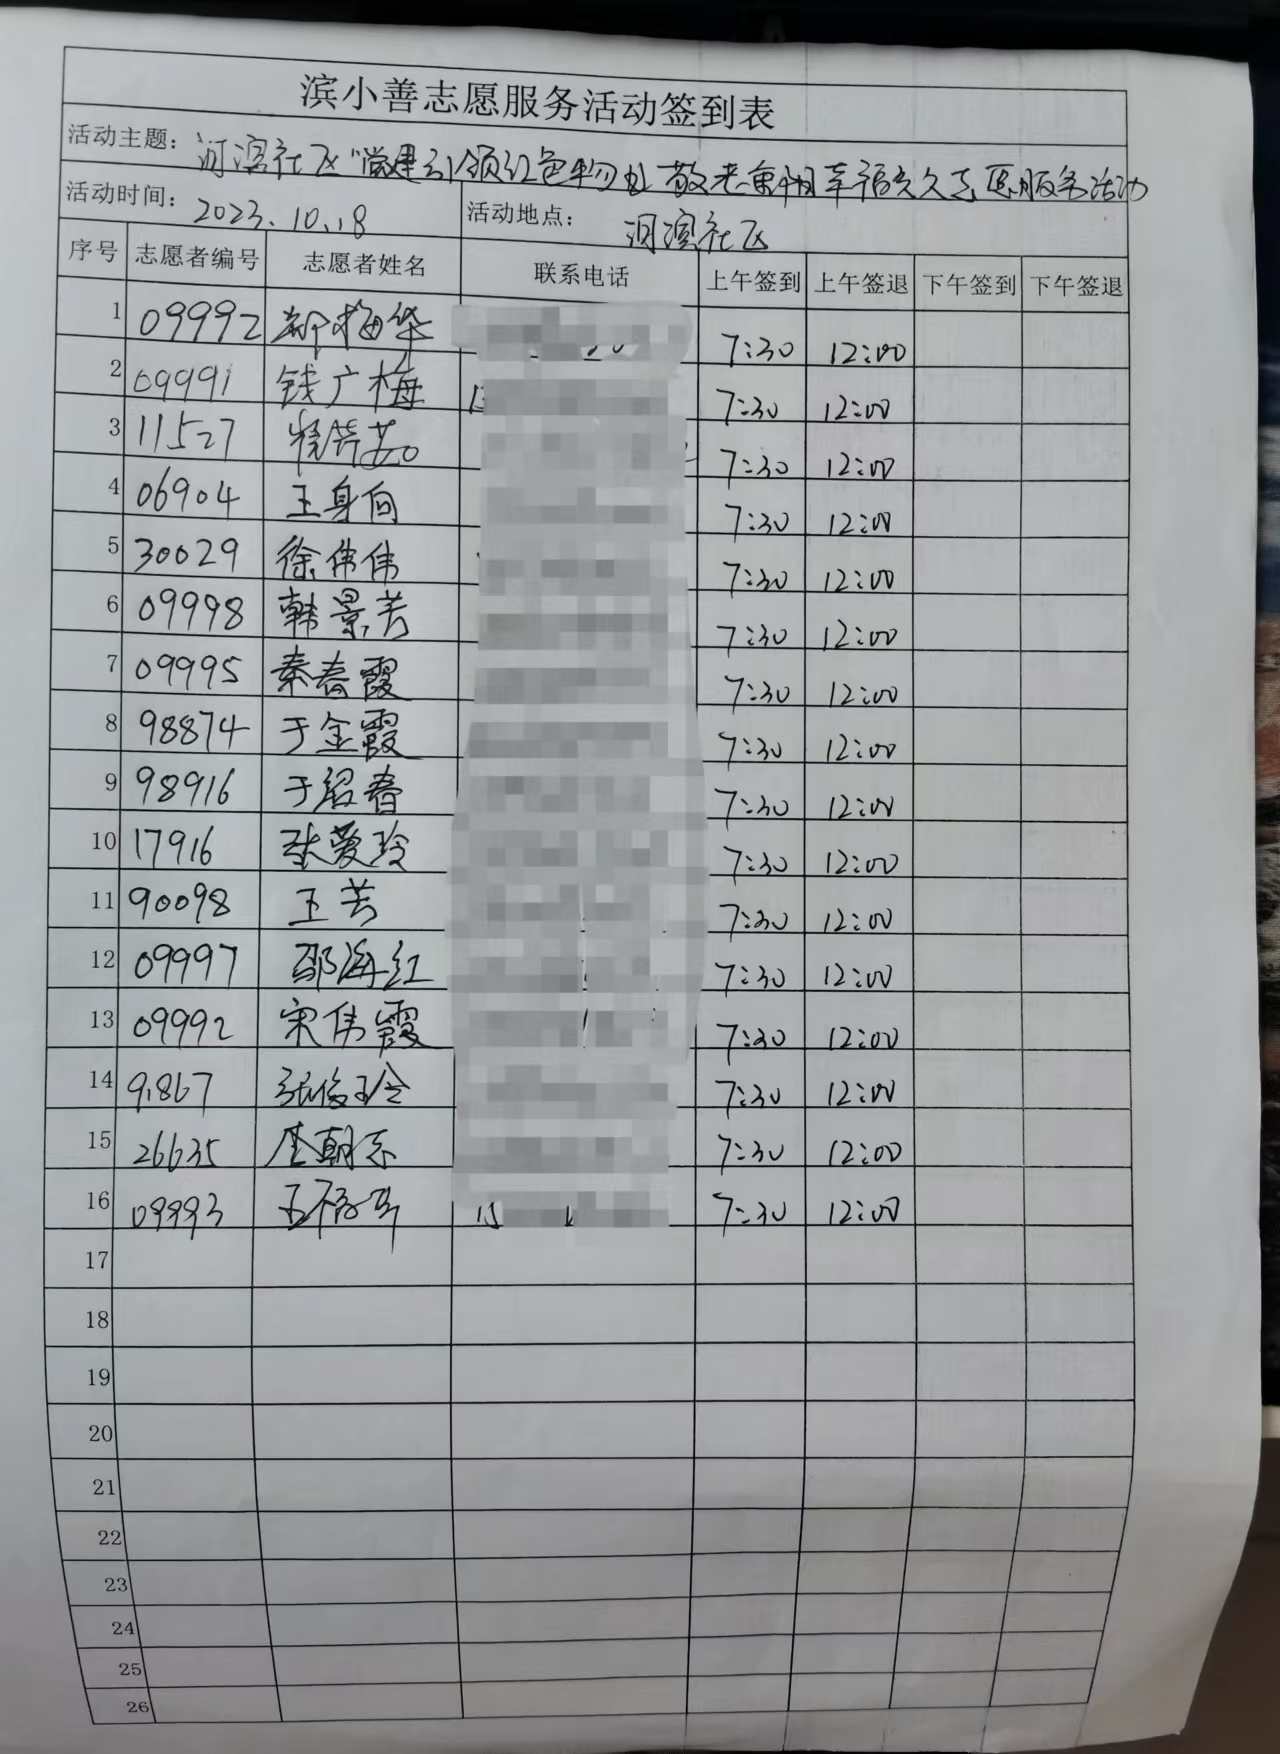 滨小善志愿服务活动签到表
活动主题: 河滨社区"党建引领红色物业 敬老重阳 幸福久久志愿服务活动
活动时间: 2023.10.18 活动地点: 河滨社区
序号 志愿者编号 志愿者姓名 联系电话 上午签到 上午签退 下午签到 下午签退
1 09992 郝梅华 7:30 12:00
2 09991 钱广梅 7:30 12:00
3 11527 7:30 12:00
4 06904 王身向 7:30 12:00
5 30029 徐伟伟 7:30 12:00
6 09998 韩景芳 7:30 12:00
7 09995 秦春霞 7:30 12:00
8 98874 于金霞 7:30 12:00
9 98916 于绍春 7:30 12:00
10 17916 张爱玲 7:30 12:00
11 90098 王芳 7:30 12:00
12 09997 邵海红 7:30 12:00
13 09992 宋伟霞 7:30 12:00
14 91867 张俊玲 7:30 12:00
15 26635 7:30 12:00
16 09993 7:30 12:00
17
18
19
20
21
22
23
24
25
26